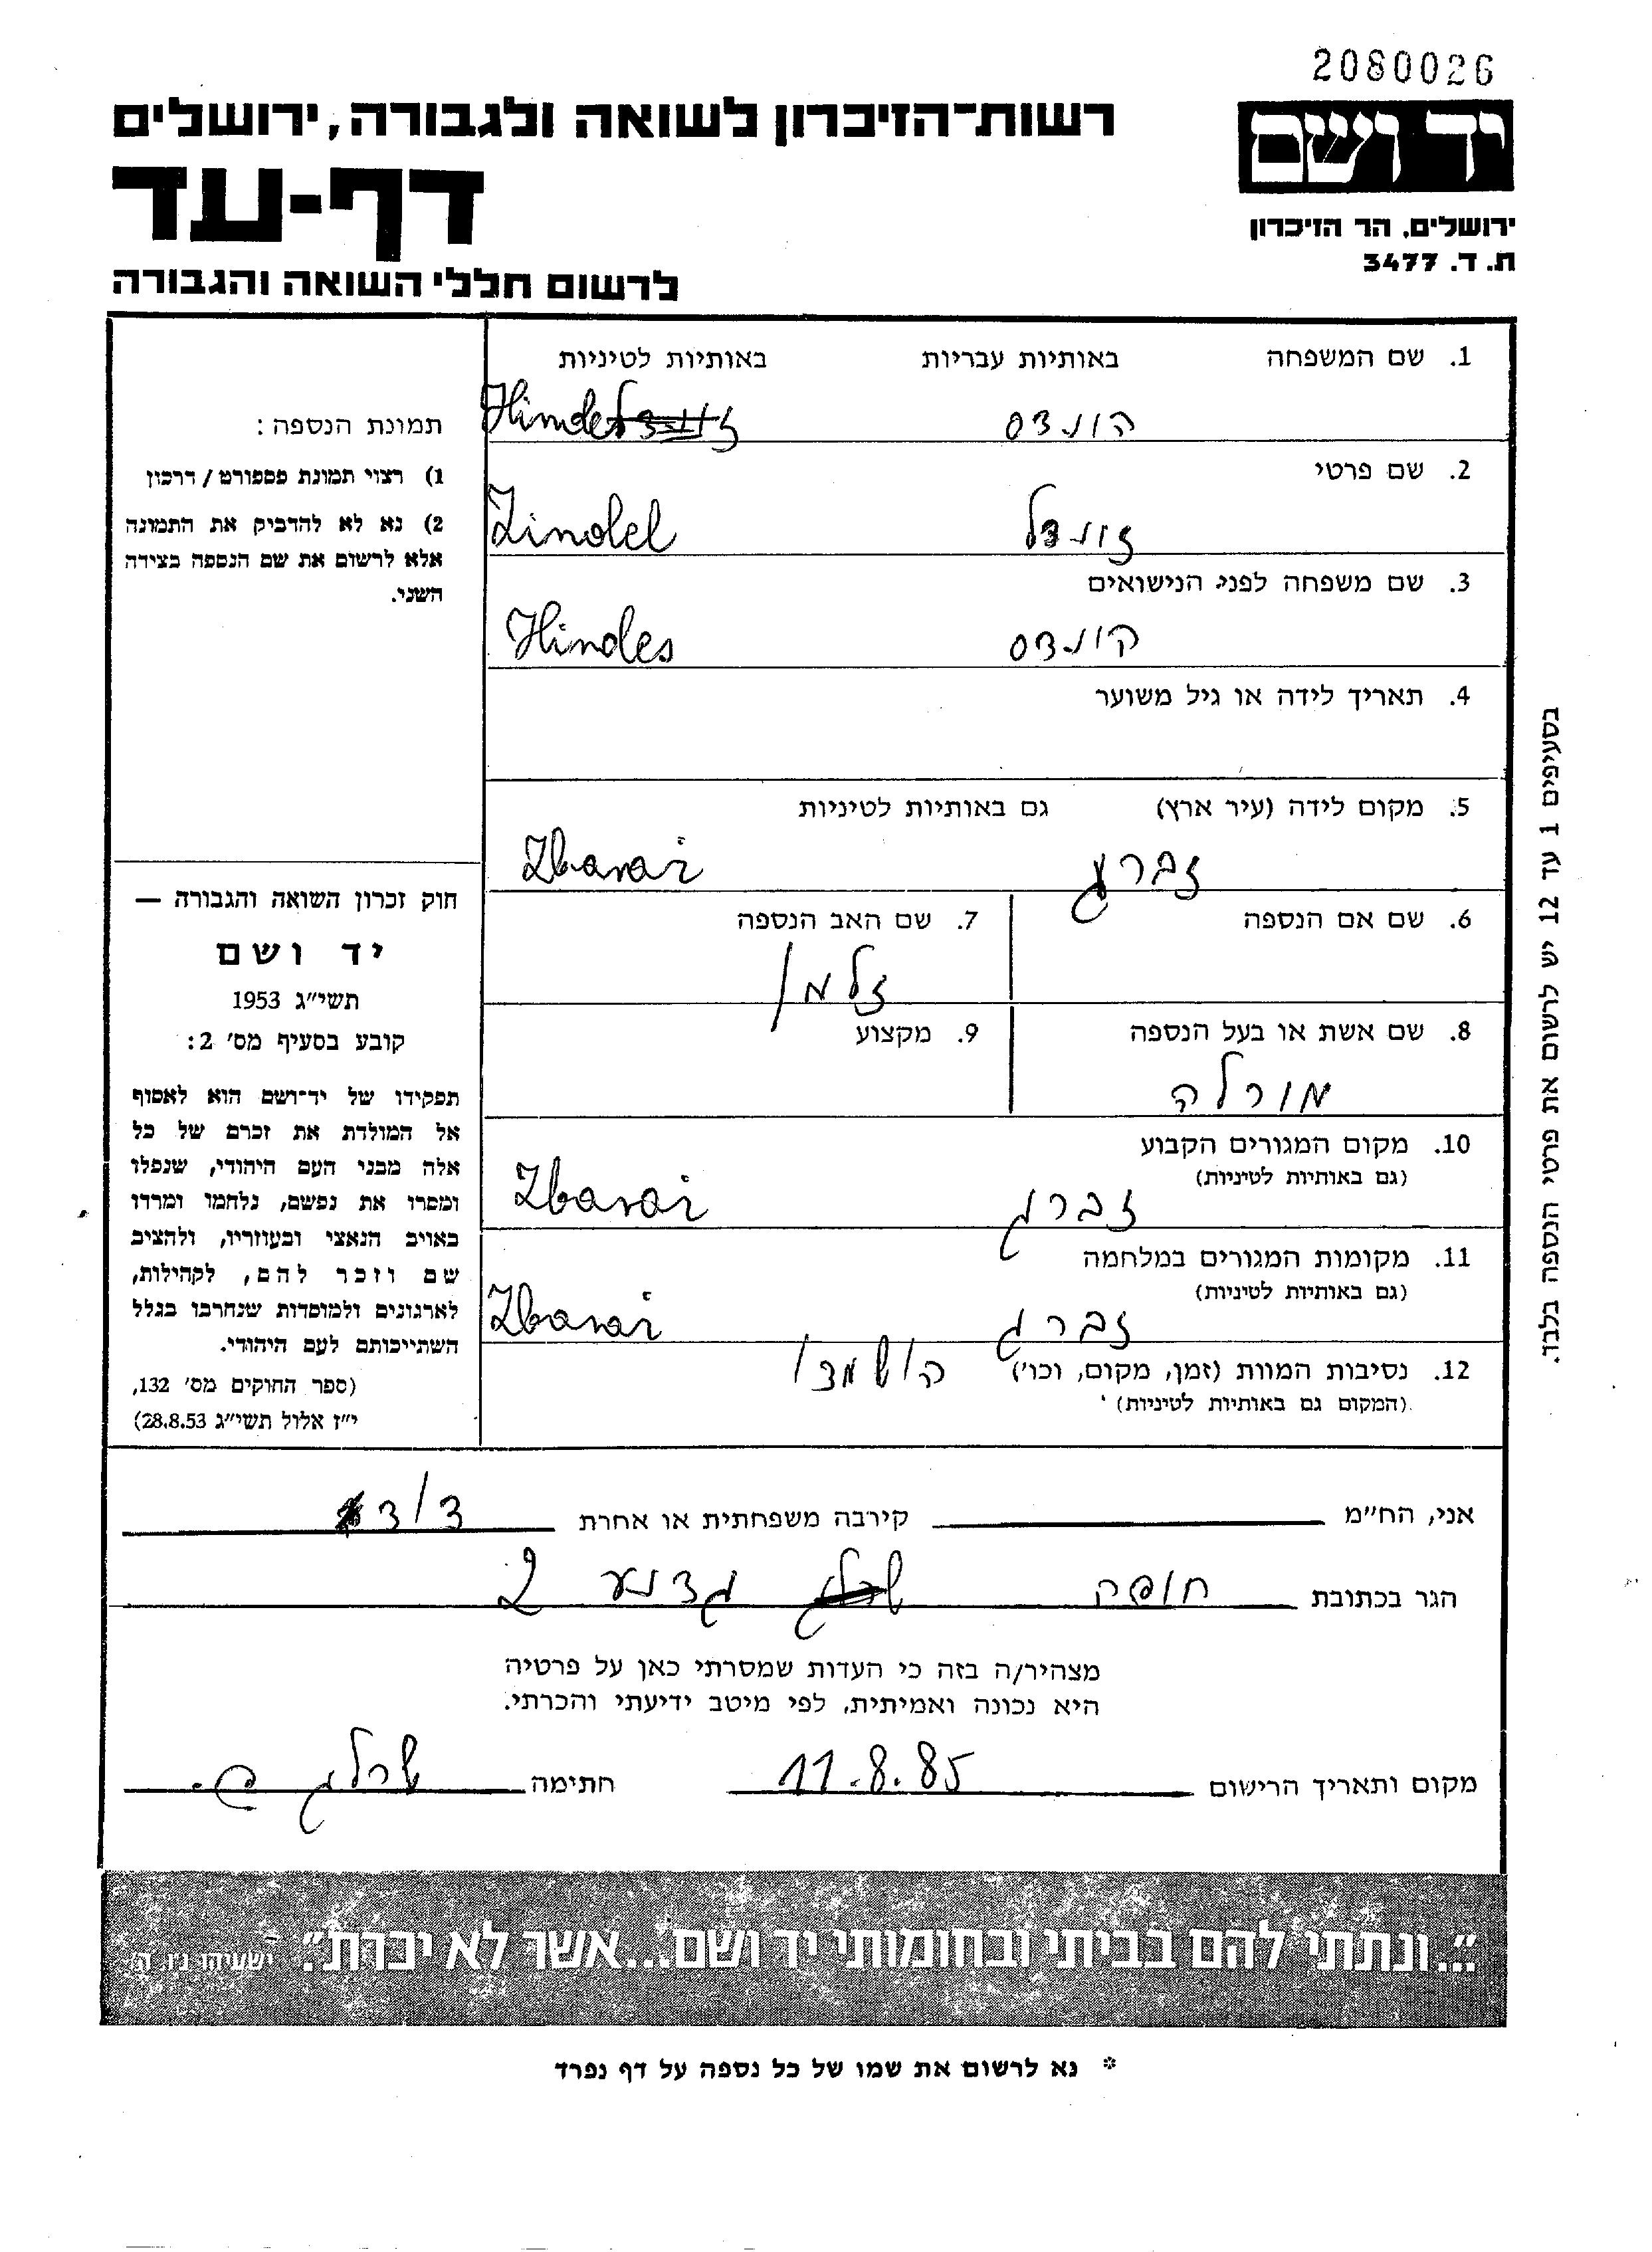 2080026
יד ושם
ירושלים, הר הזיכרון
ת. ד. 3477
רשות־הזיכרון לשואה ולגבורה, ירושלים
דף-עד
לרשום חללי השואה והגבורה
1. שם המשפחה באותיות עבריות באותיות לטיניות
הינדס Hindes
2. שם פרטי
זינדל Zindel
3. שם משפחה לפני הנישואים
הינדס Hindes
4. תאריך לידה או גיל משוער
5. מקום לידה (עיר ארץ) גם באותיות לטיניות
Zbaraż
6. שם אם הנספה 7. שם האב הנספה
זלמן
8. שם אשת או בעל הנספה 9. מקצוע
10. מקום המגורים הקבוע
(גם באותיות לטיניות)
Zbaraż
11. מקומות המגורים במלחמה
(גם באותיות לטיניות)
Zbaraż
12. נסיבות המוות (זמן, מקום, וכו') הושמדו
(המקום גם באותיות לטיניות)
תמונת הנספה:
1) רצוי תמונת פספורט / דרכון
2) נא לא להדביק את התמונה
אלא לרשום את שם הנספה בצידה
השני.
חוק זכרון השואה והגבורה —
יד ושם
תשי״ג 1953
קובע בסעיף מס׳ 2:
תפקידו של יד־ושם הוא לאסוף
אל המולדת את זכרם של כל
אלה מבני העם היהודי, שנפלו
ומסרו את נפשם, נלחמו ומרדו
באויב הנאצי ובעוזריו, ולהציב
שם וזכר להם, לקהילות,
לארגונים ולמוסדות שנחרבו בגלל
השתייכותם לעם היהודי.
(ספר החוקים מס׳ 132,
י״ז אלול תשי״ג 28.8.53)
בסעיפים 1 עד 12 יש לרשום את פרטי הנספה בלבד.
אני, הח״מ קירבה משפחתית או אחרת דוד
הגר בכתובת חיפה גדנע 2
מצהיר/ה בזה כי העדות שמסרתי כאן על פרטיה
היא נכונה ואמיתית, לפי מיטב ידיעתי והכרתי.
מקום ותאריך הרישום 11.8.85 חתימה
״...ונתתי להם בביתי ובחומותי יד ושם...אשר לא יכרת״. ישעיהו נ״ו, ה׳
* נא לרשום את שמו של כל נספה על דף נפרד